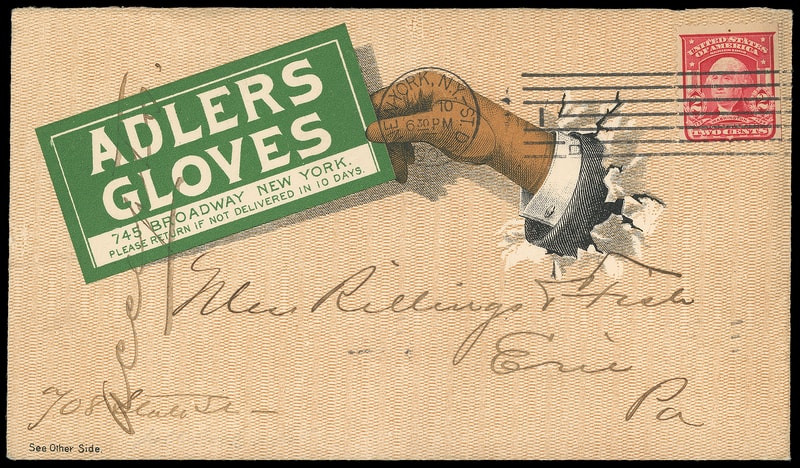 ADLERS
GLOVES
745 BROADWAY NEW YORK.
PLEASE RETURN IF NOT DELIVERED IN 10 DAYS.
YORK, N.Y.
10
630 PM
UNITED STATES
OF AMERICA
2 2
TWO CENTS
& Fish
Erie
Pa
708 State St -
See Other Side.